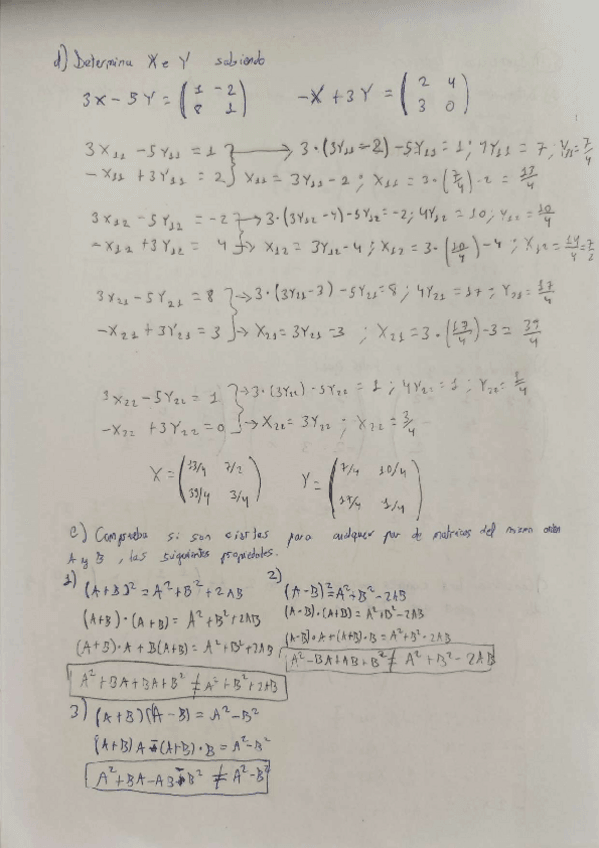 d) Determina X e Y sabiendo
3X-5Y = (1 -2
8 1) -X+3Y = (2 4
3 0)
3X₁₁ -5Y₁₁ = 1 → 3·(3Y₁₁-2)-5Y₁₁=1; 4Y₁₁ = 7; Y₁₁= 7/4
-X₁₁ +3Y₁₁ = 2 X₁₁ = 3Y₁₁-2; X₁₁ = 3·(7/4)-2 = 13/4
3X₁₂ -5Y₁₂ = -2 → 3·(3Y₁₂-4)-5Y₁₂=-2; 4Y₁₂ = 10; Y₁₂ = 10/4
-X₁₂ +3Y₁₂ = 4 → X₁₂ = 3Y₁₂-4; X₁₂ = 3·(10/4)-4; X₁₂ = 14/4 = 7/2
3X₂₁ -5Y₂₁ = 8 → 3·(3Y₂₁-3)-5Y₂₁=8; 4Y₂₁ = 17; Y₂₁ = 17/4
-X₂₁ +3Y₂₁ = 3 → X₂₁ = 3Y₂₁-3; X₂₁ = 3·(17/4)-3 = 39/4
3X₂₂ -5Y₂₂ = 1 → 3·(3Y₂₂)-5Y₂₂ = 1; 4Y₂₂ = 1; Y₂₂ = 1/4
-X₂₂ +3Y₂₂ = 0 → X₂₂ = 3Y₂₂; X₂₂ = 3/4
X = (13/4 7/2
39/4 3/4) Y = (7/4 10/4
17/4 1/4)
e) Comprueba si son ciertas para cualquer par de matrices del mismo orden
A y B, las siguientes propiedades.
1) (A+B)² = A²+B²+2AB
(A+B)·(A+B) = A²+B²+2AB
(A+B)·A + B(A+B) = A²+B²+2AB
A²+BA+BA+B² ≠ A²+B²+2AB
2) (A-B)² = A²+B²-2AB
(A-B)·(A+B) = A²+B²-2AB
(A-B)·A+(A+B)·B = A²+B²-2AB
A²-BA+AB+B² ≠ A²+B²-2AB
3) (A+B)(A-B) = A²-B²
(A+B)A-(A+B)·B = A²-B²
A²+BA-AB-B² ≠ A²-B²